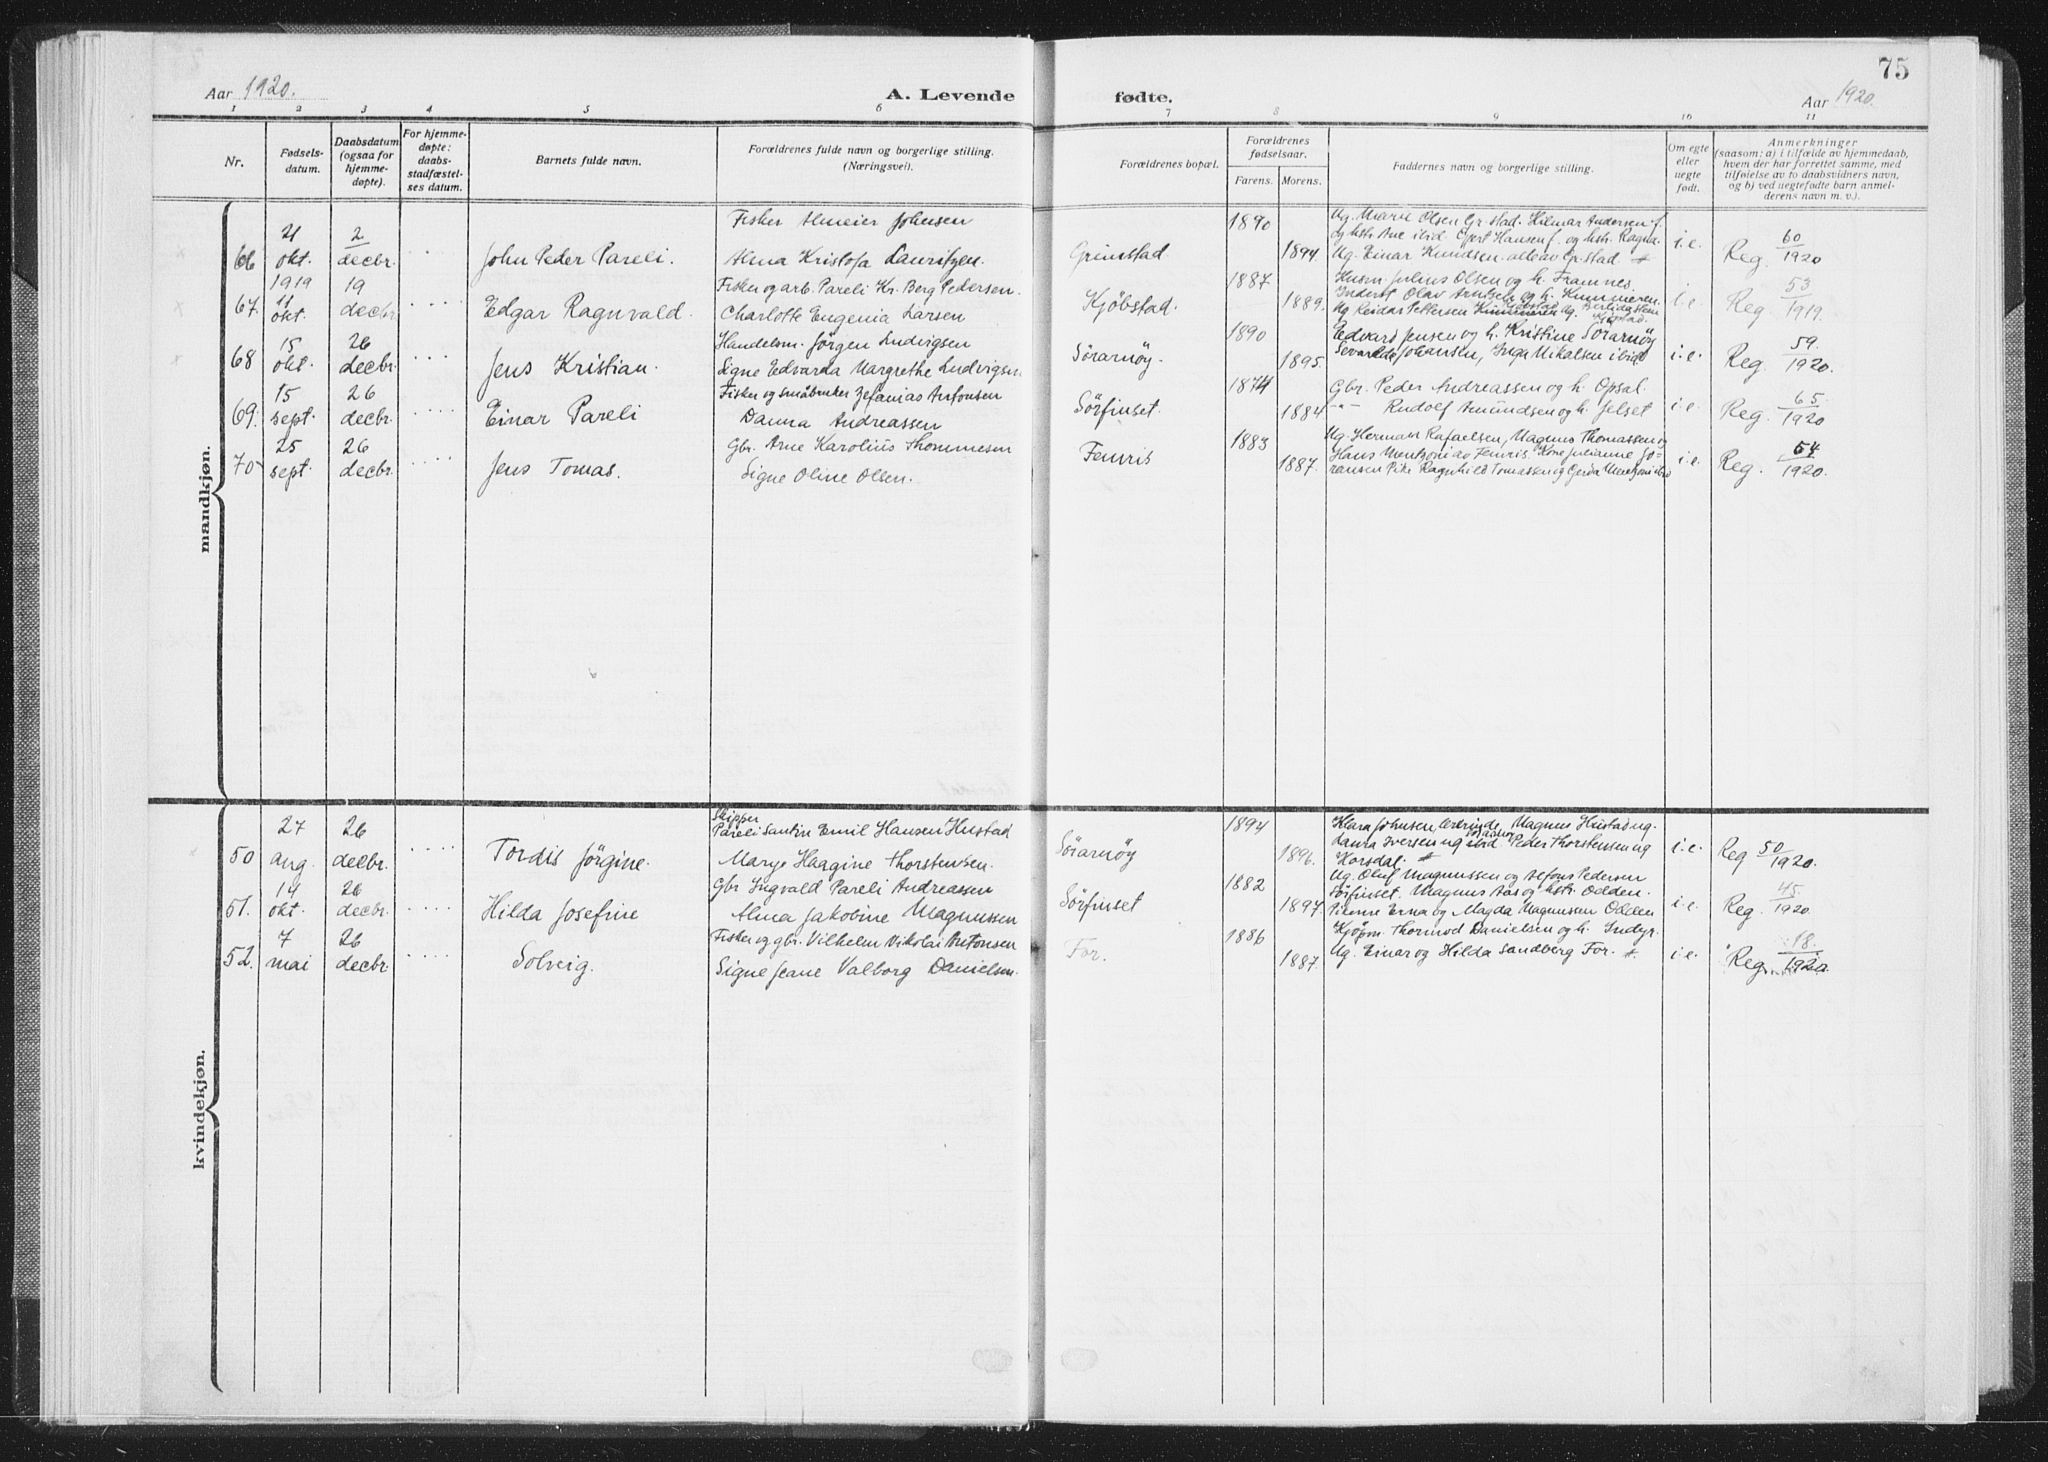 75
Aar 1920.
A. Levende
fødte.
Aar 1920.
1 2 3 4 5 6 7 8 9 10 11
Nr.
Fødselsdatum.
Daabsdatum (ogsaa for hjemmedøpte).
For hjemmedøpte: daabsstadfæstelses datum.
Barnets fulde navn.
Forældrenes fulde navn og borgerlige stilling. (Næringsvei).
Forældrenes bopæl.
Forældrenes fødselsaar.
Farens. Morens.
Faddernes navn og borgerlige stilling.
Om egte eller uegte født.
Anmerkninger
(saasom: a) i tilfælde av hjemmedaab, hven der har forrettet samme, med tilføielse av to daabsvidners navn, og b) ved uegtefødte barn anmelderens navn m. v.).
mandkjøn.
66 21 okt. 2 decbr. John Peder Pareli.
Fisker Almeier Johnsen
Alma Kristofa Lauritzen.
Grimstad. 1890 1894
Ug. Marie Olsen Gr.stad. Hilmar Andersen f.
og hstr. Ane ibid Hansen f. og hstr. Ragna.
Ug. Einar Knudsen. alle av Gr.stad
i.e. Reg. 60/1920
67. 1919 11 okt. 19 decbr. Edgar Ragnvald.
Fisker og arb. Pareli Kr. Berg Pedersen.
Charlotte Eugenia Larsen
Kjøbstad. 1887 1889.
Husm Julius Olsen og h. Framnes.
Inderst Olav Arntsen og h. Kunmeren.
Ug Reidar Pettersen Kjøbstad Ug.
i.e. Reg. 53/1919.
68 15 okt. 26 decbr. Jens Kristian.
Handelsm. Jörgen Ludvigsen
Signe Edvarda Margrethe Ludvigsen
Sörarnöy. 1890 1895.
Edvard Jensen og h. Kristine Sörarnöy
Johansen, Inga Mikalsen ibid
i.e. Reg. 59./1920.
69. 15 sept. 26 decbr. Einar Pareli
Fisker og småbruker Zefanias Antonsen
Danna Andreassen
Sörfinset. 1874 1884
Gbr. Peder Andreassen og h. Opsal.
-"- Rudolf Amundsen og h. Jelset
i.e. Reg. 65/1920
70 25 sept. 26 decbr. Jens Tomas.
Gbr. Arne Karolius Thommesen
Signe Oline Olsen.
Femris 1883 1887.
Ug. Herman Rafaelsen, Magnus Thomassen og
Hans Mentzoni av Femris. Kone Julianne Jo-
hansen Pike Ragnhild Tomassen og Gerda Mentzoni ibid
i.e. Reg. 64/1920.
kvindekjøn.
50 27 aug. 26 decbr. Tordis Jörgine.
Skipper
Pareli Santin Emil Hansen Hustad
Marye Haagine Thorstensen.
Sörarnöy 1894 1896.
Klara Johnsen, Magnus Hustad ug.
Laura Iversen ug ibid Peder Thorstensen ug
Korsdal.
i.e. Reg 50/1920.
51. 14 okt. 26 decbr. Hilda Josefine
Gbr Ingvald Pareli Andreassen
Alma Jakobine Magnussen
Sörfinset 1882 1897.
Ug. Oluf Magnussen og Alfons Pedersen
Sörfinset. Magnus Aas og hstr. Odden.
Pikerne Erna og Magda Magnussen Odden
i.e. Reg. 45./1920.
52. 7 mai 26 decbr. Solveig.
Fisker og gbr. Vilhelm Nikolai Antonsen
Signe Jeane Valborg Danielsen.
For. 1886 1887.
Kjöpm. Thormod Danielsen og h. Indyr.
Ug. Einar og Hilda Sandberg For.
i.e. Reg. 18./1920.